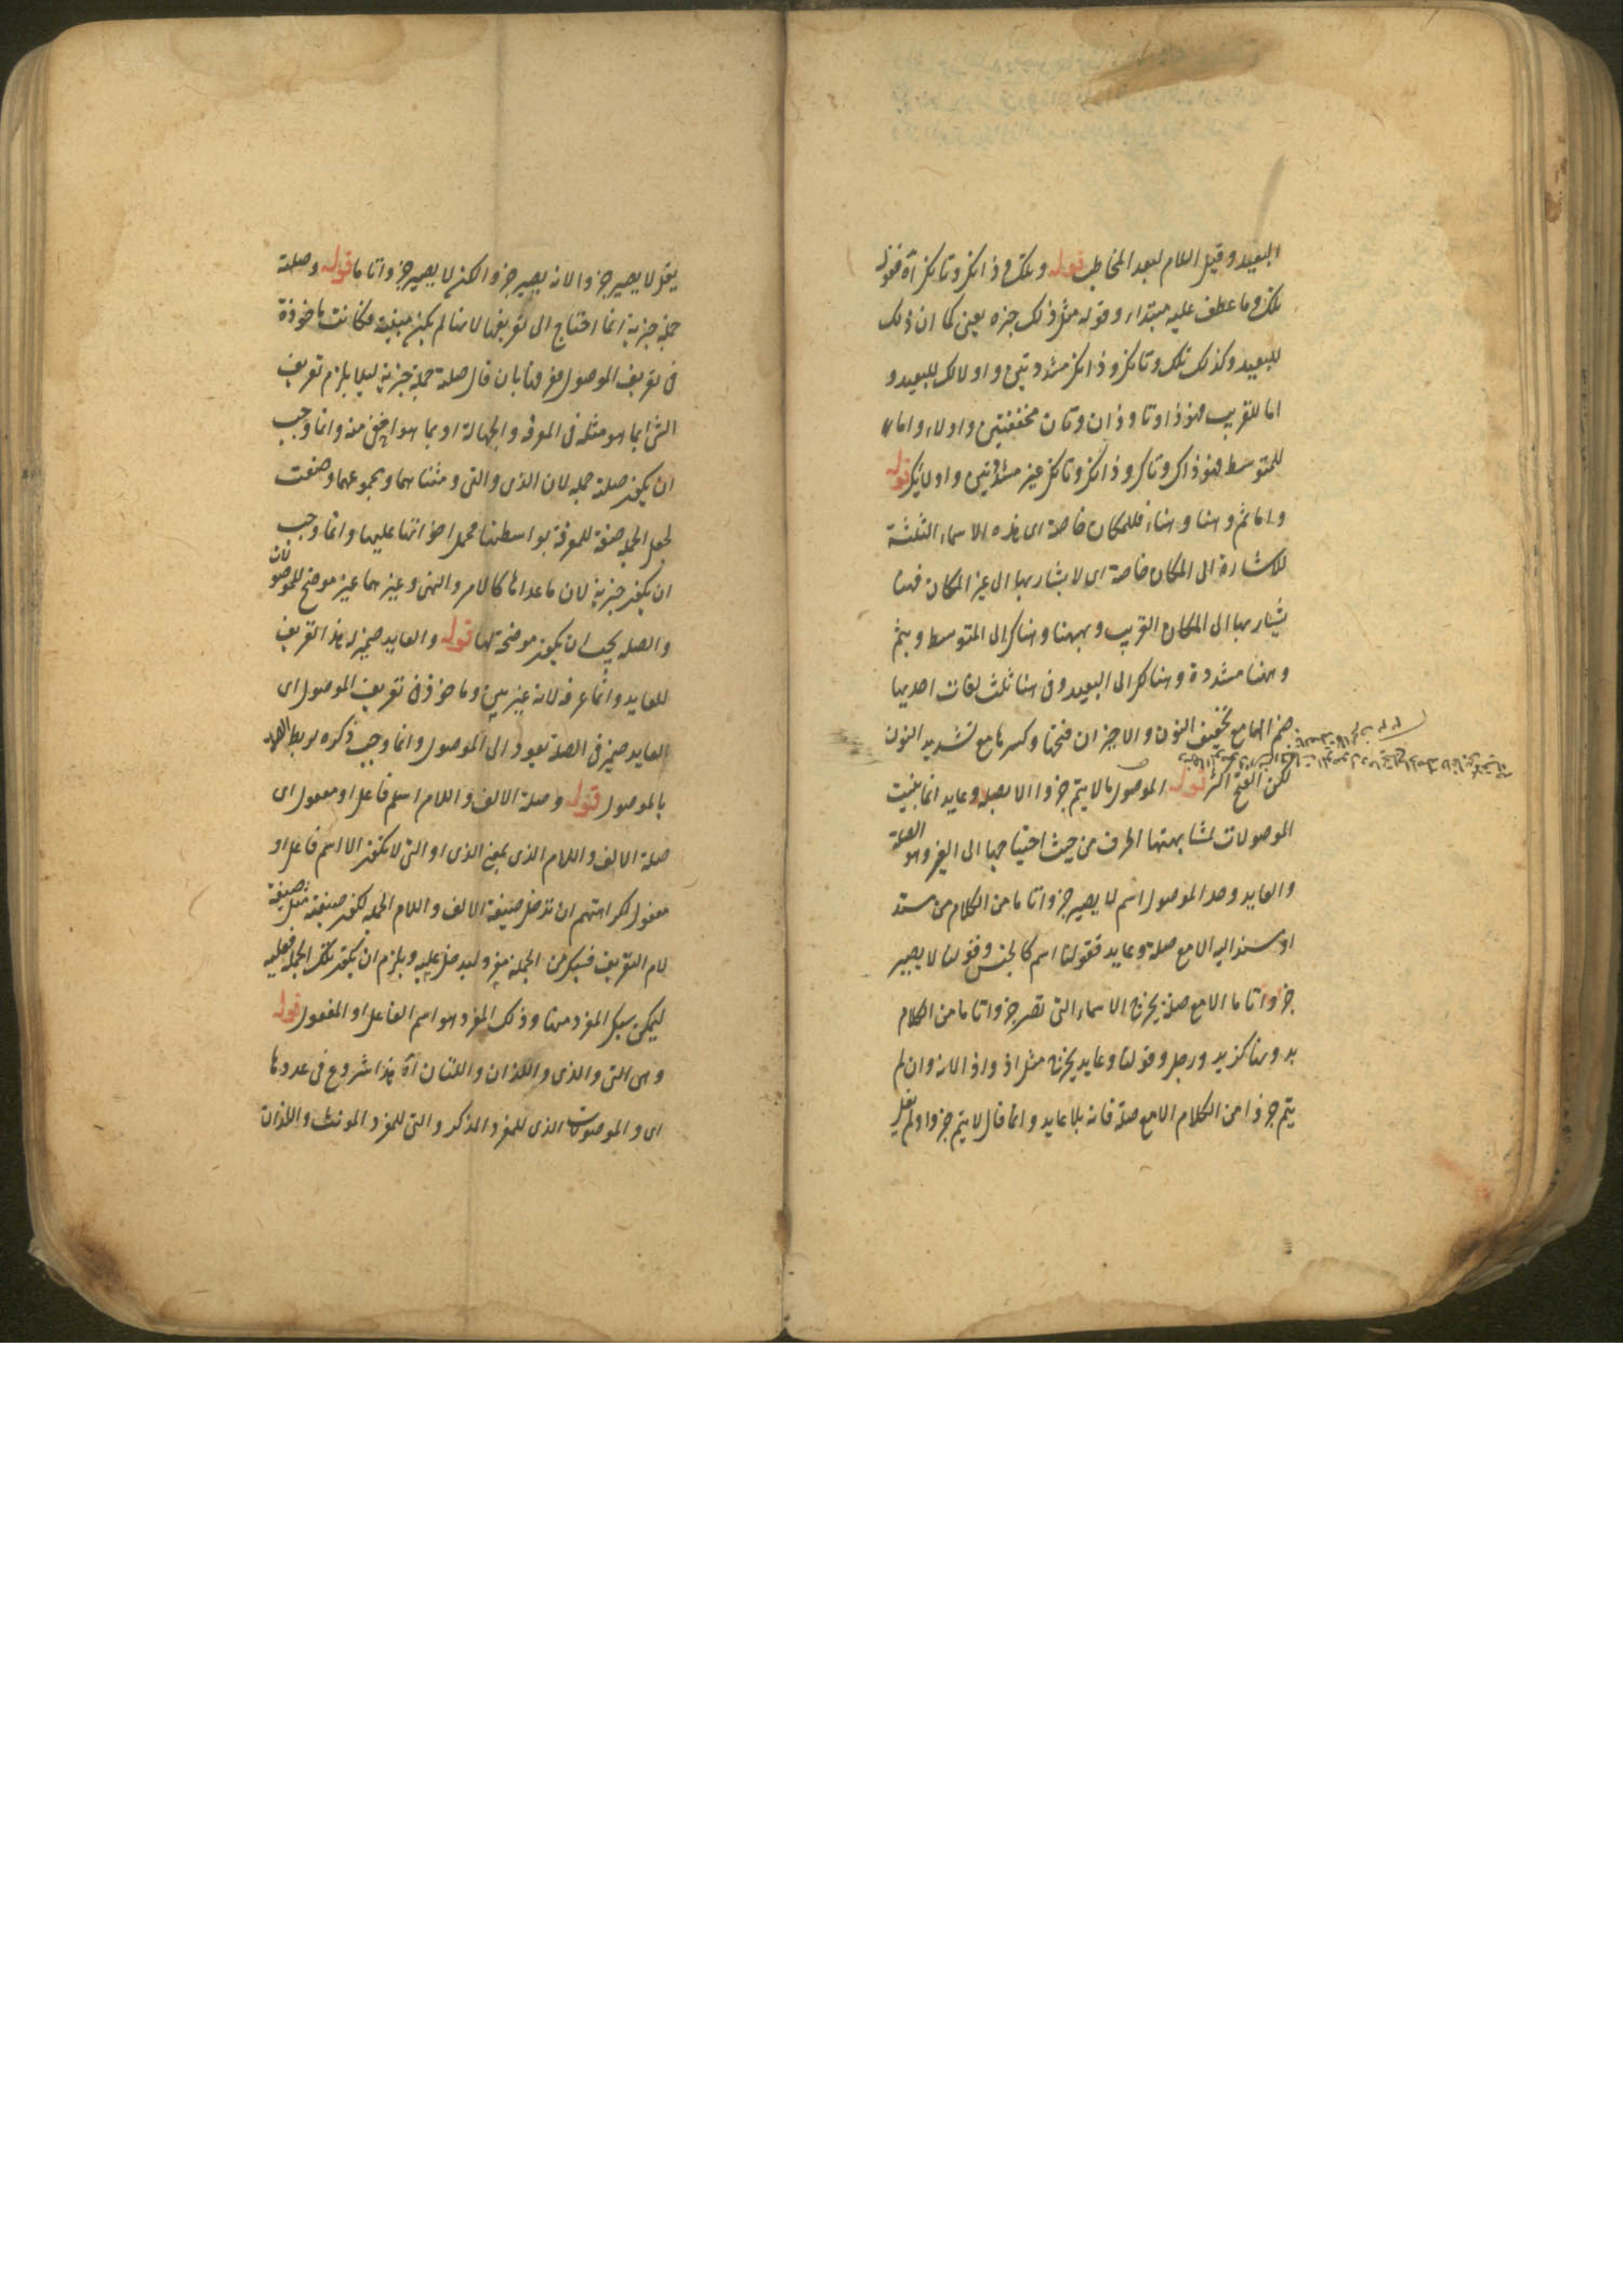 البعيد وقيل اللام لبعد المخاطب قوله وتلك وذانك وتانك آه فقوله
تلك وما عطف عليه مبتداء وقوله مثل ذلك خبره يعني كما ان ذلك
للبعيد وكذلك تلك وتانك وذانك مشددتين واولالك للبعيد و
اما للقريب فهو ذا وتا وذان وتان مخففتين واولاء واما
للمتوسط فهو ذاك وتاك وذانك وتانك غير مشددتين واولئك قوله
واما ثم وهنا وهنا فللمكان خاصة اى هذه الاسماء الثلثة
للاشارة الى المكان خاصة اى لا يشار بها الى غير المكان فهنا
يشار بها الى المكان القريب وههنا وهناك الى المتوسط وبثم
وهنا مشددة وهنالك الى البعيد وفى هنا ثلث لغات احديها
ضم الها مع تخفيف النون والاخران فتحها وكسرها مع تشديد النون
لكن الفتح اكثر قوله الموصول ما لا يتم جزوا الا بصلة وعايد انما بنيت
الموصولات لمشابهتها الحرف من حيث احتياجها الى الغير وهو الصلة
والعايد وحد الموصول اسم لا يصير جزوا تاما من الكلام من مسند
او مسند اليه الا مع صلة وعايد فقولنا اسم كالجنس وقولنا لا يصير
جزوا تاما الا مع صلة يخرج الاسماء التى تصير جزوا تاما من الكلام
بدونها كزيد ورجل وقولنا وعايد يخرج مثل اذ واذا لانه وان لم
يتم جزوا من الكلام الا مع صلة فانه بلا عايد وانما قال لا يتم جزوا ولم يقل
يقل لا يصير جزوا لانه يصير جزوا لكن لا يصير جزوا تاما قوله وصلته
جملة خبرية انما احتاج الى تعريفها لانها لم يكن مبينة وكانت ماخوذة
فى تعريف الموصول فعرفها بان قال صلته جملة خبرية ليلا يلزم تعريف
الشى بما هو مثله فى المعرفة والجهالة او بما هو اخفى منه وانما وجب
ان يكون صلته جملة لان الذى والتى ومثناهما ومجموعهما وضعت
لجعل الجملة صفة للمعرفة بواسطتها فحمل اخواتها عليها وانما وجب
ان يكون خبرية لان ما عداها كالامر والنهى وغيرهما غير موضح للموصولات
والصلة يجب ان يكون موضحة لها قوله والعايد ضمير له هذا تعريف
للعايد وانما عرفه لانه غير بين وماخوذ فى تعريف الموصول اى
العايد ضمير فى الصلة يعود الى الموصول وانما وجب ذكره لربط الصلة
بالموصول قوله وصلة الالف واللام اسم فاعل او مفعول اى
صلة الالف واللام الذى بمعنى الذى او التى لا يكون الا اسم فاعل او
مفعول لكراهتهم ان تدخل صيغة الالف واللام الجملة لكون صيغته مثل صيغة
لام التعريف فسبك من الجملة مفرد ليدخل عليه ويلزم ان يكون تلك الجملة فعلية
ليمكن سبك المفرد منها وذلك المفرد هو اسم الفاعل او المفعول قوله
وهى التى والذى واللذان واللتان آه هذا شروع فى عددها
اى والموصولات الذى للمفرد المذكر والتى للمفرد المونث واللذان